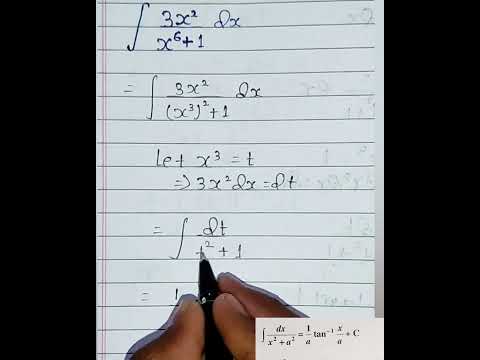 ∫ 3x² / x⁶+1 dx
= ∫ 3x² / (x³)²+1 dx
let x³ = t
⇒ 3x² dx = dt
= ∫ dt / t² + 1
= 1
∫ dx / x² + a² = 1/a tan⁻¹ x/a + C